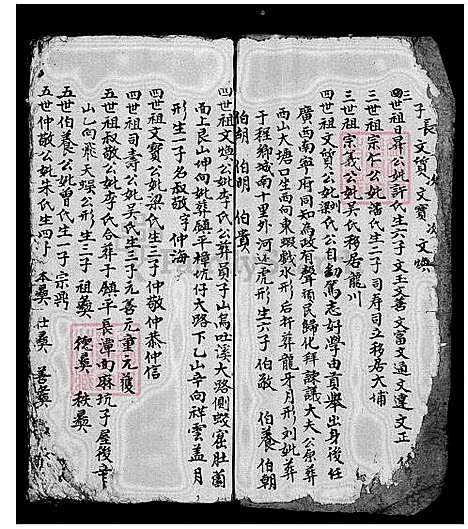 三子長文貨 次文寶 次文煥
四世祖日昇公妣許氏生六子文玉文善文富文通文達文正
三世祖宗仁公妣潘氏生二子司寿司立移居大埔
三世祖宗義公妣吳氏移居龍川
四世祖文質公妣劉氏公自幼篤志好學由貢舉出身後任
廣西南寧府同知為政有聲積民歸化拜諫議大夫公原葬
西山大塘口坐西向東蝦戲水形后扦葬龍牙月形刘妣葬
于程鄉城南十里外河迁虎形生六子 伯敬 伯養 伯朝
伯胡 伯明 伯貴
四世祖文煥公妣李氏公葬員子山烏吐溪大路側蛟窑肚園
面上艮山坤向妣葬鎮平樟坑仔大路下乙山辛向祥雲盖月
形生一子名叔敬字仲海
四世祖文寶公妣梁氏生三子仲敬仲恭仲信
四世祖司壽公妣吳氏生三子元善元重元獲
五世祖叔敬公妣李氏合葬于鎮平長潭南麻坑子屋後辛
山乙向飛天蜈公形生三子 祖彝 德彝 秩彝
五世伯養公妣曾氏生一子宗鼎
五世仲敬公妣朱氏生四子 本彝 仕彝 善彝